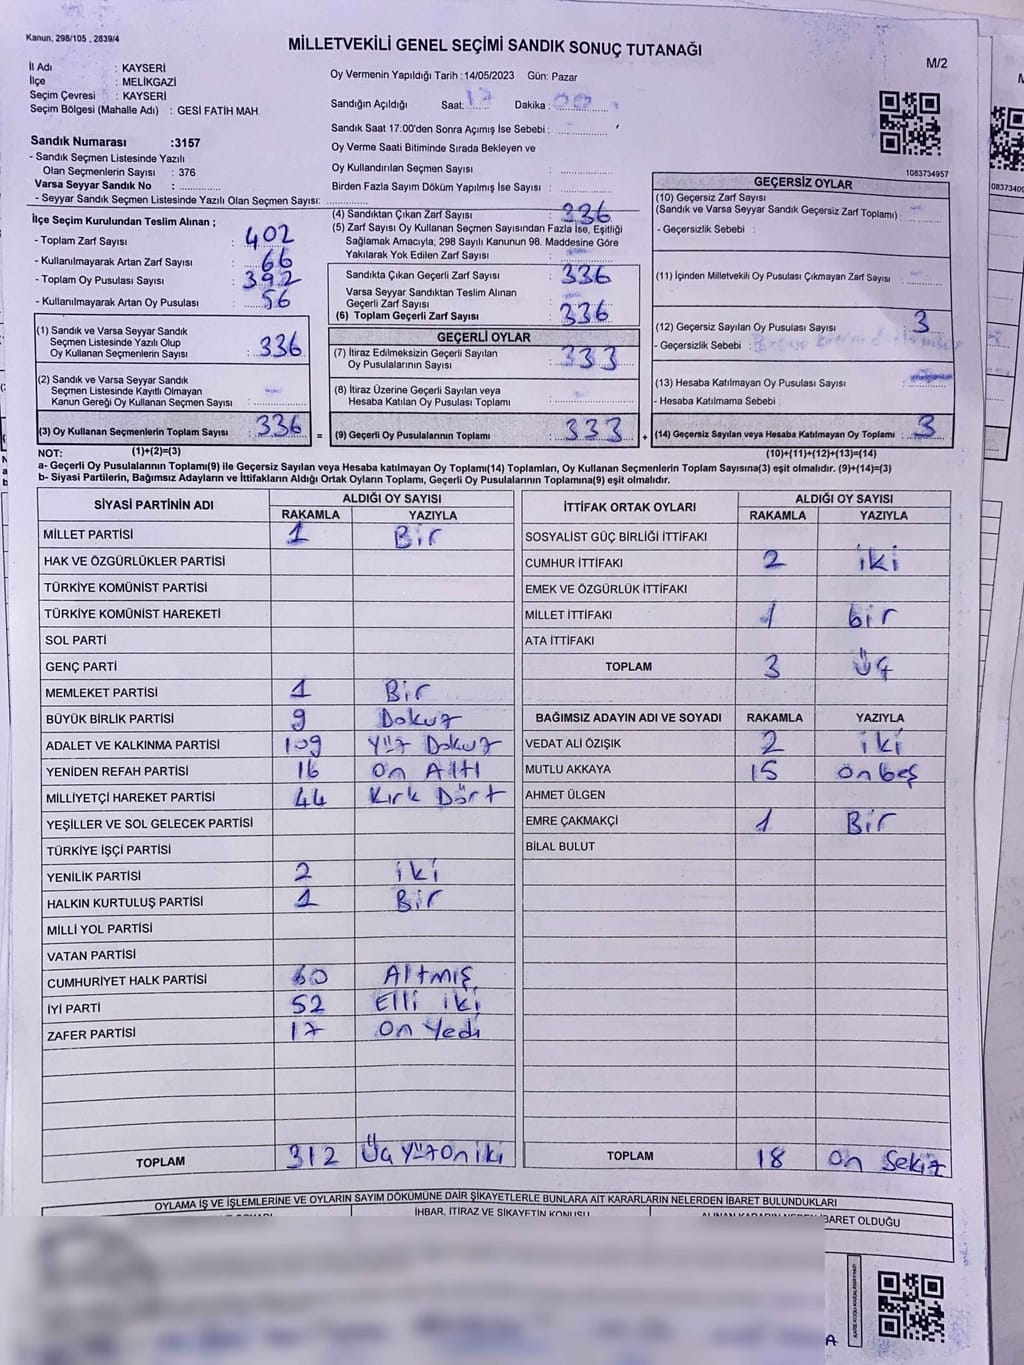 Kanun, 298/105 , 2839/4
MİLLETVEKİLİ GENEL SEÇİMİ SANDIK SONUÇ TUTANAĞI
M/2
İl Adı : KAYSERİ
İlçe : MELİKGAZİ
Seçim Çevresi : KAYSERİ
Seçim Bölgesi (Mahalle Adı) : GESİ FATİH MAH.
Sandık Numarası :3157
- Sandık Seçmen Listesinde Yazılı
Olan Seçmenlerin Sayısı : 376
Varsa Seyyar Sandık No :
- Seyyar Sandık Seçmen Listesinde Yazılı Olan Seçmen Sayısı:
Oy Vermenin Yapıldığı Tarih :14/05/2023 Gün: Pazar
Sandığın Açıldığı Saat: 17 Dakika : 00
Sandık Saat 17:00'den Sonra Açımış İse Sebebi :
Oy Verme Saati Bitiminde Sırada Bekleyen ve
Oy Kullandırılan Seçmen Sayısı :
Birden Fazla Sayım Döküm Yapılmış İse Sayısı :
1083734957
İlçe Seçim Kurulundan Teslim Alınan ;
- Toplam Zarf Sayısı : 402
- Kullanılmayarak Artan Zarf Sayısı : 66
- Toplam Oy Pusulası Sayısı : 392
- Kullanılmayarak Artan Oy Pusulası : 56
(1) Sandık ve Varsa Seyyar Sandık
Seçmen Listesinde Yazılı Olup
Oy Kullanan Seçmenlerin Sayısı : 336
(2) Sandık ve Varsa Seyyar Sandık
Seçmen Listesinde Kayıtlı Olmayan
Kanun Gereği Oy Kullanan Seçmen Sayısı :
(3) Oy Kullanan Seçmenlerin Toplam Sayısı : 336
(1)+(2)=(3)
(4) Sandıktan Çıkan Zarf Sayısı : 336
(5) Zarf Sayısı Oy Kullanan Seçmen Sayısından Fazla İse, Eşitliği
Sağlamak Amacıyla, 298 Sayılı Kanunun 98. Maddesine Göre
Yakılarak Yok Edilen Zarf Sayısı :
Sandıkta Çıkan Geçerli Zarf Sayısı : 336
Varsa Seyyar Sandıktan Teslim Alınan
Geçerli Zarf Sayısı :
(6) Toplam Geçerli Zarf Sayısı : 336
GEÇERLİ OYLAR
(7) İtiraz Edilmeksizin Geçerli Sayılan
Oy Pusulalarının Sayısı : 333
(8) İtiraz Üzerine Geçerli Sayılan veya
Hesaba Katılan Oy Pusulası Toplamı :
= (9) Geçerli Oy Pusulalarının Toplamı : 333
GEÇERSİZ OYLAR
(10) Geçersiz Zarf Sayısı
(Sandık ve Varsa Seyyar Sandık Geçersiz Zarf Toplamı) :
- Geçersizlik Sebebi :
(11) İçinden Milletvekili Oy Pusulası Çıkmayan Zarf Sayısı :
(12) Geçersiz Sayılan Oy Pusulası Sayısı : 3
- Geçersizlik Sebebi :
(13) Hesaba Katılmayan Oy Pusulası Sayısı :
- Hesaba Katılmama Sebebi :
+ (14) Geçersiz Sayılan veya Hesaba Katılmayan Oy Toplamı : 3
(10)+(11)+(12)+(13)=(14)
NOT:
a- Geçerli Oy Pusulalarının Toplamı(9) ile Geçersiz Sayılan veya Hesaba katılmayan Oy Toplamı(14) Toplamları, Oy Kullanan Seçmenlerin Toplam Sayısına(3) eşit olmalıdır. (9)+(14)=(3)
b- Siyasi Partilerin, Bağımsız Adayların ve İttifakların Aldığı Ortak Oyların Toplamı, Geçerli Oy Pusulalarının Toplamına(9) eşit olmalıdır.
SİYASİ PARTİNİN ADI ALDIĞI OY SAYISI
RAKAMLA YAZIYLA
MİLLET PARTİSİ 1 Bir
HAK VE ÖZGÜRLÜKLER PARTİSİ
TÜRKİYE KOMÜNİST PARTİSİ
TÜRKİYE KOMÜNİST HAREKETİ
SOL PARTİ
GENÇ PARTİ
MEMLEKET PARTİSİ 1 Bir
BÜYÜK BİRLİK PARTİSİ 9 Dokuz
ADALET VE KALKINMA PARTİSİ 109 Yüz Dokuz
YENİDEN REFAH PARTİSİ 16 On Altı
MİLLİYETÇİ HAREKET PARTİSİ 44 Kırk Dört
YEŞİLLER VE SOL GELECEK PARTİSİ
TÜRKİYE İŞÇİ PARTİSİ
YENİLİK PARTİSİ 2 iki
HALKIN KURTULUŞ PARTİSİ 1 Bir
MİLLİ YOL PARTİSİ
VATAN PARTİSİ
CUMHURİYET HALK PARTİSİ 60 Altmış
İYİ PARTİ 52 Elli iki
ZAFER PARTİSİ 17 On Yedi
TOPLAM 312 Üç Yüz On iki
İTTİFAK ORTAK OYLARI ALDIĞI OY SAYISI
RAKAMLA YAZIYLA
SOSYALİST GÜÇ BİRLİĞİ İTTİFAKI
CUMHUR İTTİFAKI 2 iki
EMEK VE ÖZGÜRLÜK İTTİFAKI
MİLLET İTTİFAKI 1 bir
ATA İTTİFAKI
TOPLAM 3 Üç
BAĞIMSIZ ADAYIN ADI VE SOYADI RAKAMLA YAZIYLA
VEDAT ALİ ÖZIŞIK 2 iki
MUTLU AKKAYA 15 onbeş
AHMET ÜLGEN
EMRE ÇAKMAKÇİ 1 Bir
BİLAL BULUT
TOPLAM 18 On Sekiz
OYLAMA İŞ VE İŞLEMLERİNE VE OYLARIN SAYIM DÖKÜMÜNE DAİR ŞİKAYETLERLE BUNLARA AİT KARARLARIN NELERDEN İBARET BULUNDUKLARI
İHBAR, İTİRAZ VE ŞİKAYETİN KONUSU
İBARET OLDUĞU